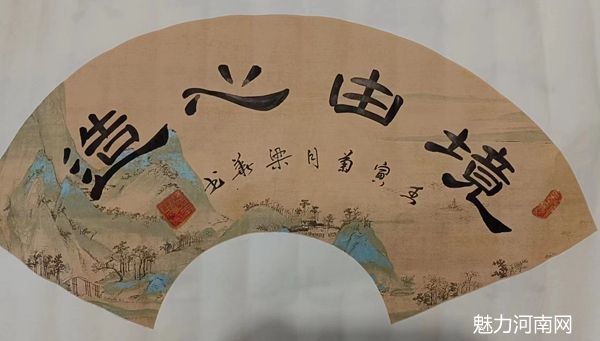 境由心造
壬寅菊月梁
书
魅力河南网